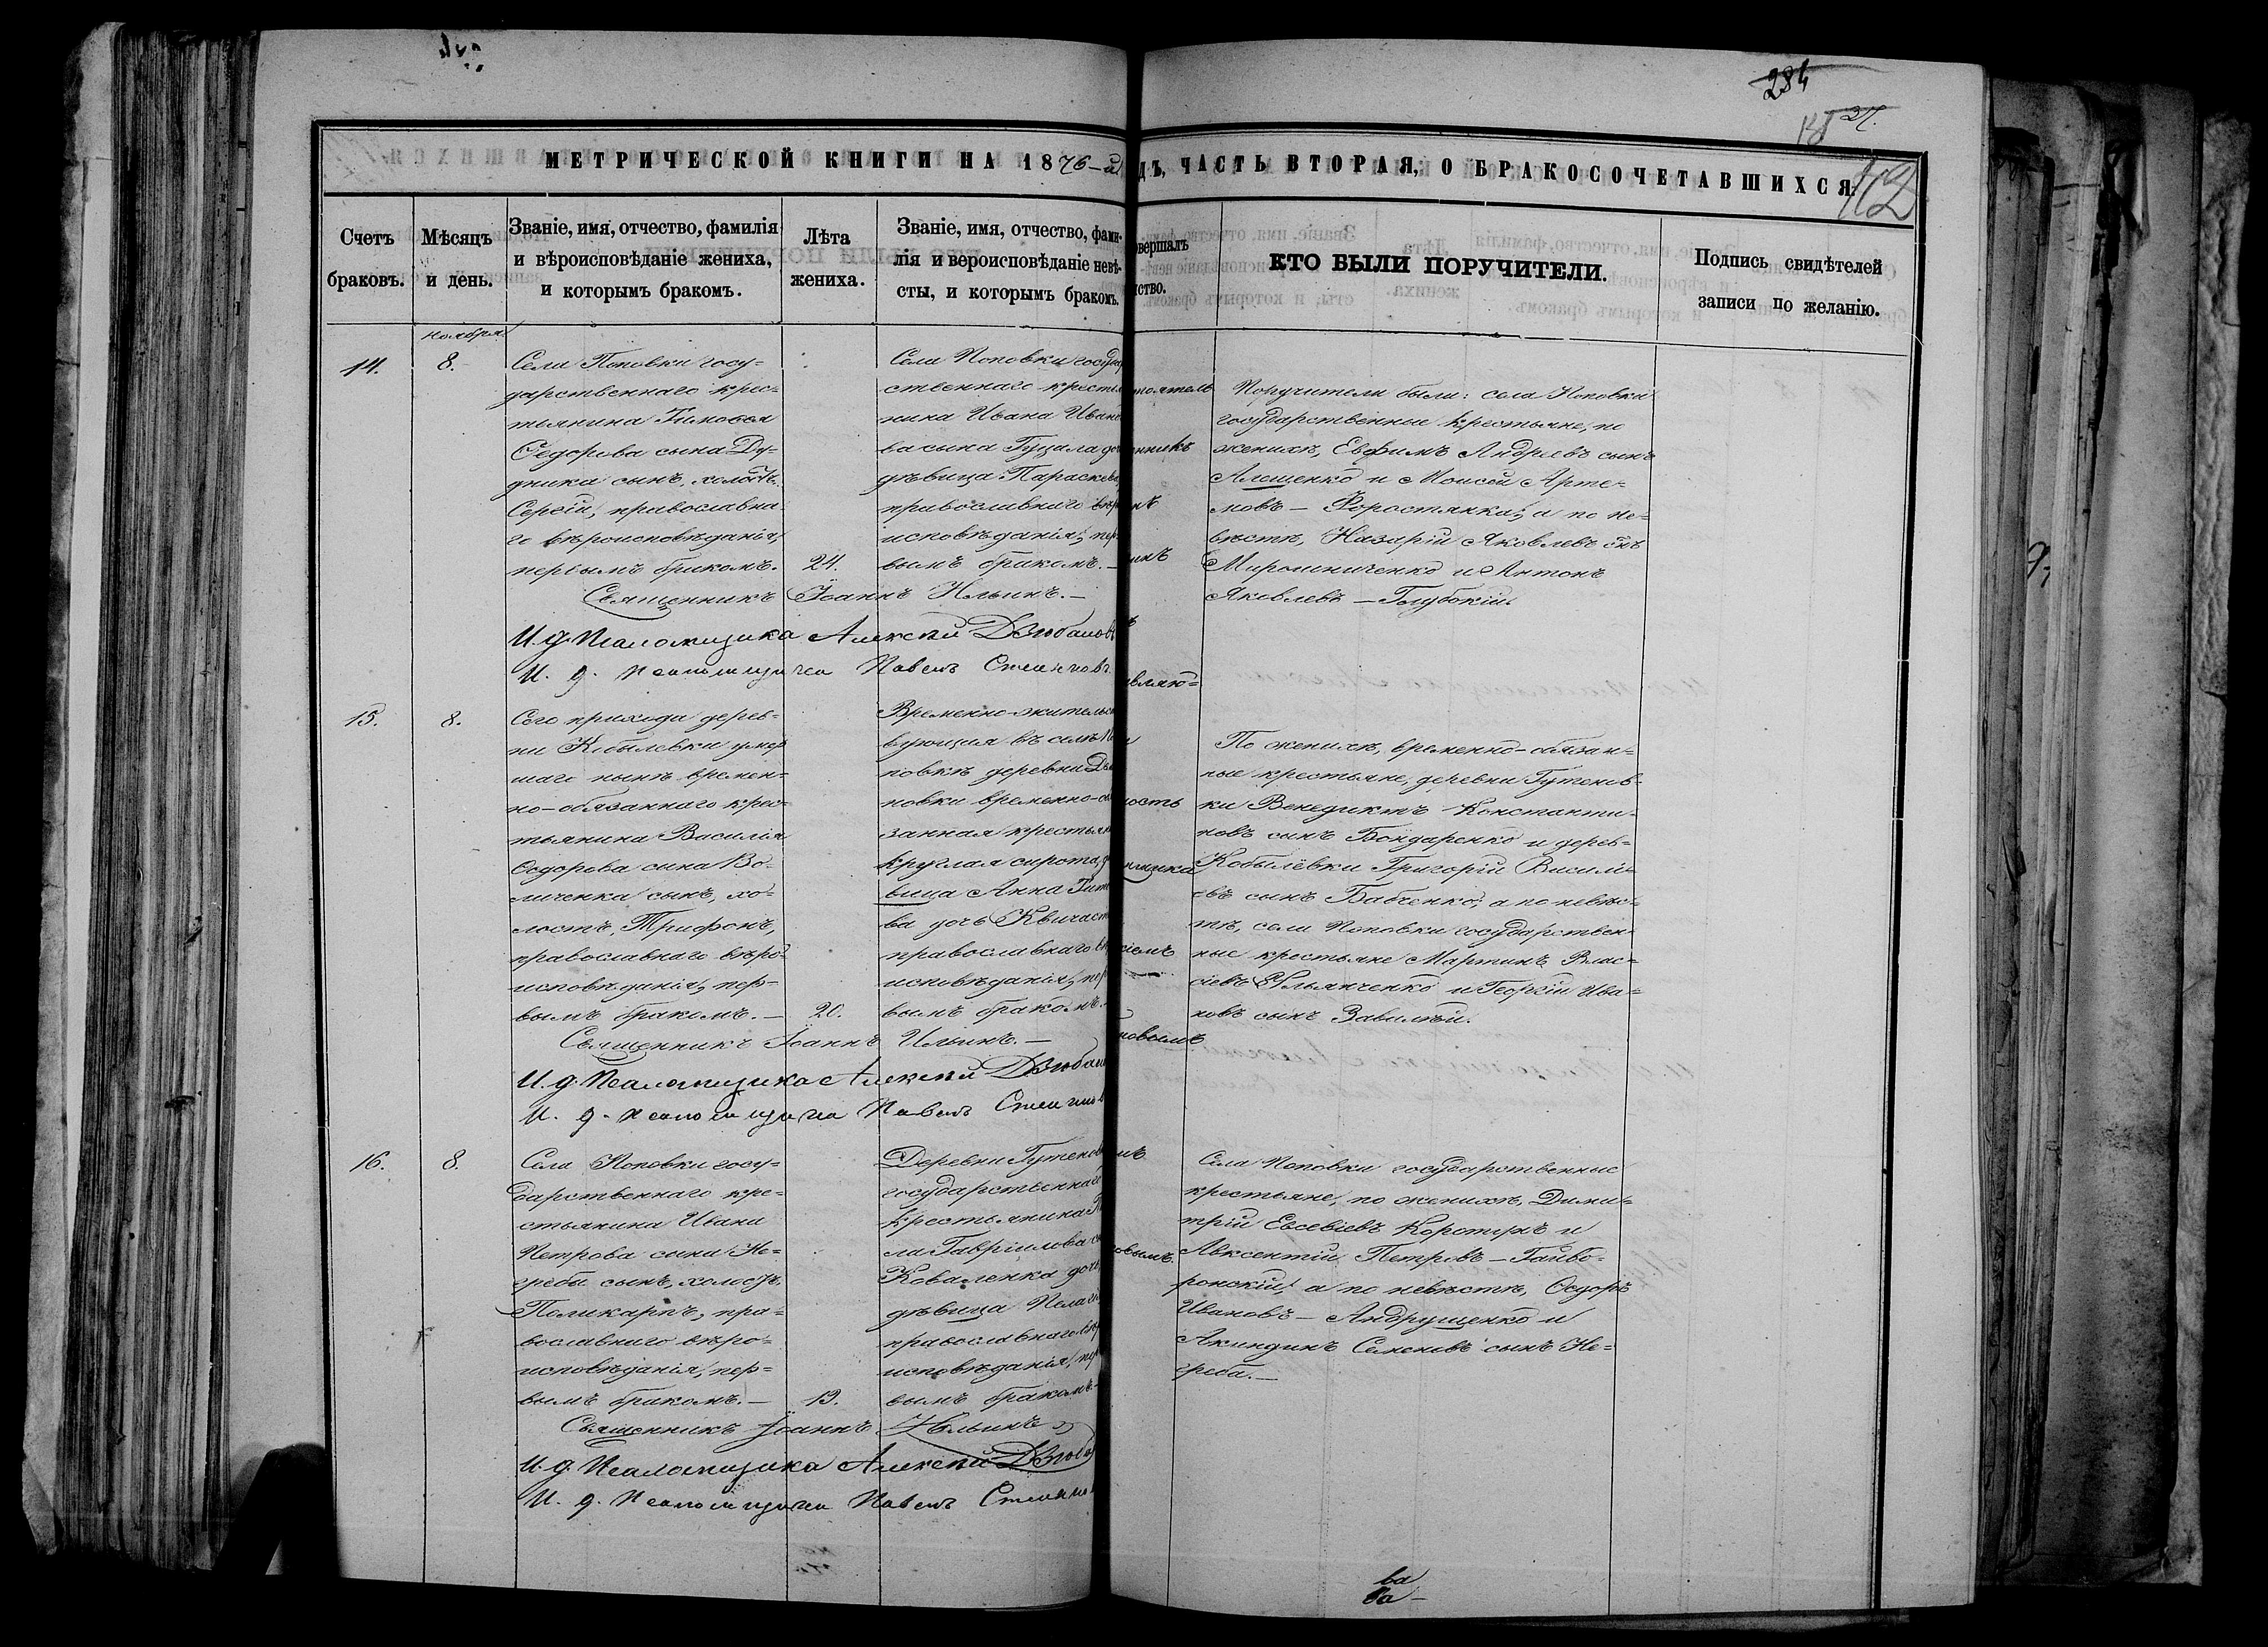 284
МЕТРИЧЕСКОЙ КНИГИ НА 1876-й
ДЪ, ЧАСТЬ ВТОРАЯ, О БРАКОСОЧЕТАВШИХСЯ.
112
Счетъ
браковъ.
Мѣсяцъ
и день.
Званіе, имя, отчество, фамилія
и вѣроисповѣданіе жениха,
и которымъ бракомъ.
Лѣта
жениха.
Званіе, имя, отчество, фами-
лія и вероисповѣданіе невѣ-
сты, и которымъ бракомъ.
овершалъ
нство.
КТО БЫЛИ ПОРУЧИТЕЛИ.
Подпись свидѣтелей
записи по желанію.
ноября
14.
8.
Села Поповки госу-
дарственнаго крес-
тьянина Тимофея
Ѳедорова сына Ду-
дника сынъ, холостъ
Сергій, православна-
го вѣроисповѣданія,
первымъ бракомъ.
24.
Села Поповки государ
ственнаго крестья
нина Ивана Ивано
ва сына Гуцала до
дѣвица Параскева
православнаго вѣро
исповѣданія, пер
вымъ бракомъ.
Поручители были: села Поповки
государственные крестьяне, по
женихѣ, Евфимъ Андреевъ сынъ
Алещенко и Моисей Арте-
мовъ — Форостянка, а по не-
вѣстѣ, Назарій Яковлевъ сынъ
Мирошниченко и Антонъ
Яковлевъ — Голубокій.
Священникъ Іоаннъ Ильинъ.
И. д. Псаломщика Алексѣй Дзюбановъ
И. д. Псаломщика Павелъ
15.
8.
Сего прихода дерев-
ни Кобылевки умер
шаго нынѣ времен-
но-обязаннаго крес-
тьянина Василія
Ѳедорова сына Во-
личенка сынъ, хо-
лостъ, Трифонъ,
православнаго вѣро-
исповѣданія, пер-
вымъ бракомъ. —
20.
Временно-жительст
вующая въ селѣ По
повкѣ деревни
новки временно-обя
занная крестьян
круглая сирота, дѣ
вица Анна
ва дочь
православнаго вѣр
исповѣданія, пер
вымъ бракомъ.
По женихѣ, временно-обязан-
ные крестьяне, деревни Гутенов-
ки Венедиктъ Константи-
новъ сынъ Бондаренко и дерев-
Кобылевки Григорій Василі-
евъ сынъ Бабченко, а по невѣс-
тѣ, села Поповки государствен-
ные крестьяне Мартинъ Влас-
сіевъ Ульянченко и Георгій Ива-
новъ сынъ Завалѣй.
Священникъ Іоаннъ Ильинъ. —
И. д. Псаломщика Алексѣй Дзюбан
И. д. Псаломщика Павелъ
16.
8.
Села Поповки госу-
дарственнаго кре-
стьянина Ивана
Петрова сына Не-
греба сынъ, холостъ,
Поликарпъ, пра-
вославнаго вѣро-
исповѣданія, пер-
вымъ бракомъ. —
19.
Деревни Гутенов
государственнаго
крестьянина
ла Гавріилова с
Коваленка дочь
дѣвица Пелагі
православнаго вѣр
исповѣданія, пер
вымъ бракомъ
Села Поповки государственные
крестьяне, по женихѣ, Дими-
трій Евсевіевъ Коротунъ и
Авксентій Петровъ — Гайво-
ронскій, а по невѣстѣ, Ѳедоръ
Ивановъ — Андрущенко и
Акиндинъ Семеновъ сынъ Не-
греба. —
Священникъ Іоаннъ Ильинъ
И. д. Псаломщика Алексѣй Дзюба
И. д. Псаломщика Павелъ